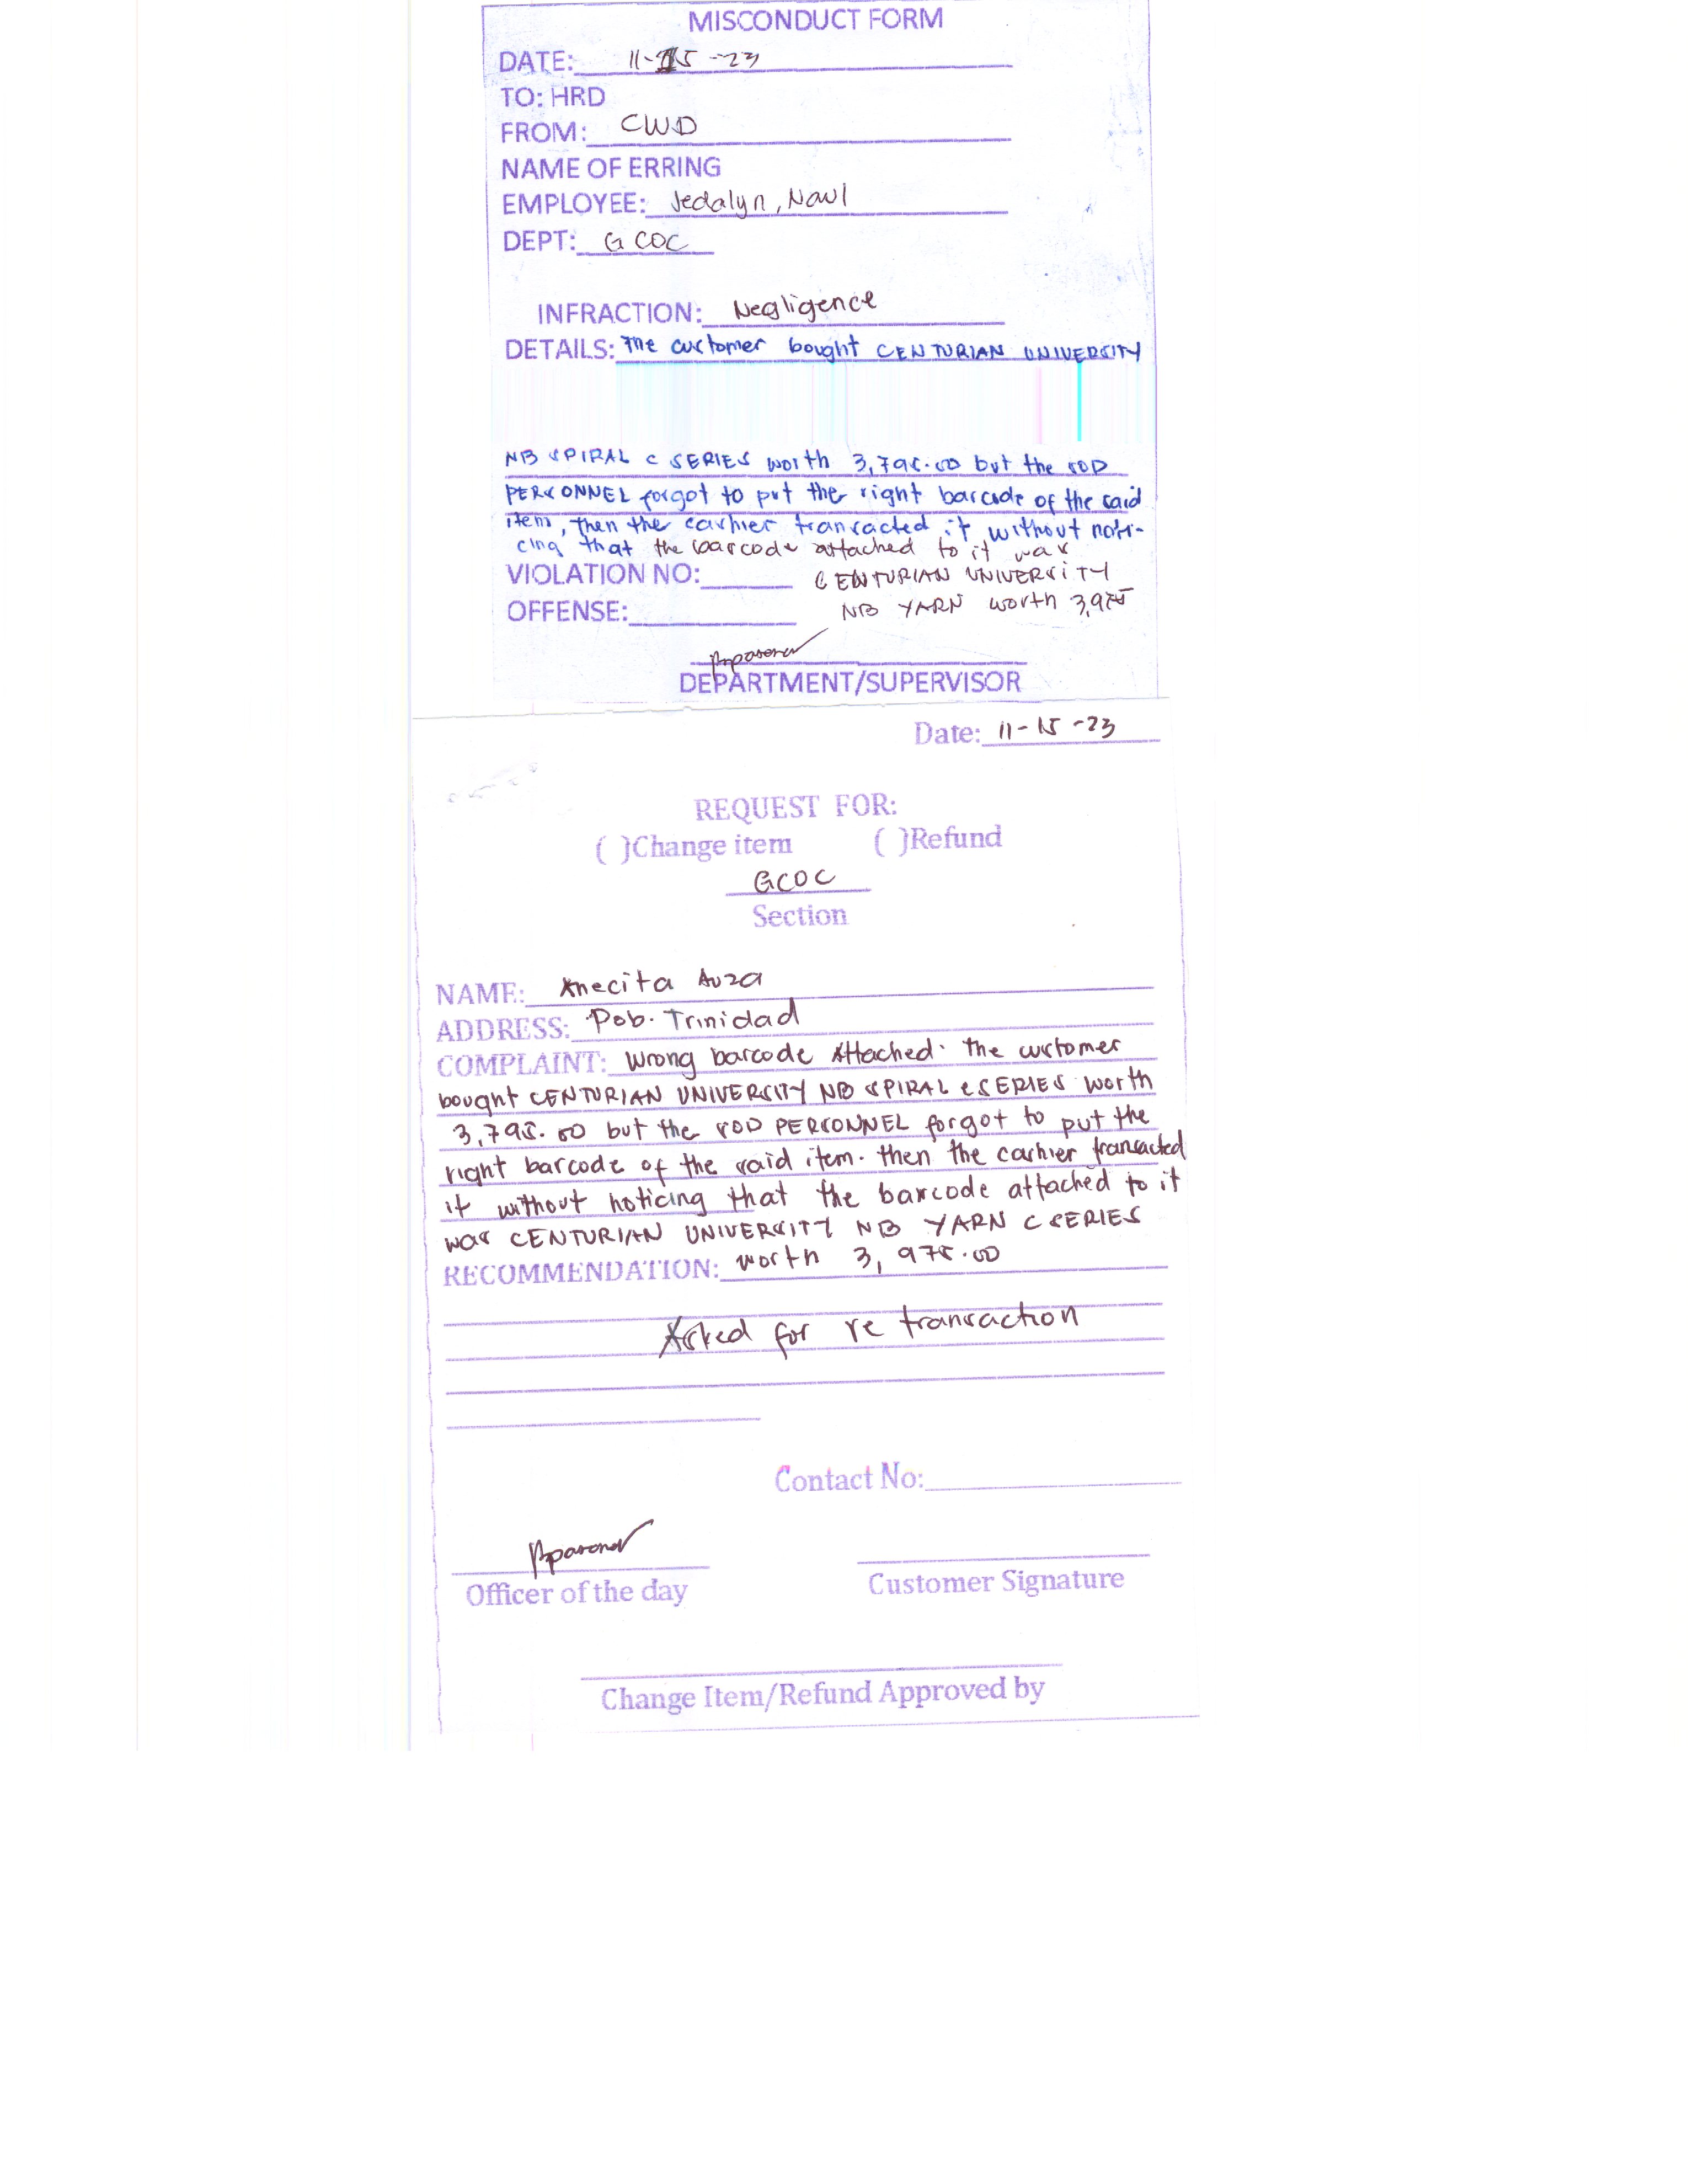 MISCONDUCT FORM
DATE: 11-15-23
TO: HRD
FROM: CWD
NAME OF ERRING
EMPLOYEE: Jedalyn, Nawl
DEPT: GCOC
INFRACTION: Negligence
DETAILS: The customer bought CENTURIAN UNIVERSITY
NB SPIRAL C SERIES worth 3,795.00 but the SOD
PERSONNEL forgot to put the right barcode of the said
item, then the cashier transacted it without noti-
cing that the barcode attached to it was
VIOLATION NO: CENTURIAN UNIVERSITY
OFFENSE: NB YARN worth 3,975
DEPARTMENT/SUPERVISOR
Date: 11-15-23
REQUEST FOR:
( )Change item ( )Refund
GCOC
Section
NAME: Anecita Auza
ADDRESS: Pob. Trinidad
COMPLAINT: Wrong barcode Attached. The customer
bought CENTURIAN UNIVERSITY NB SPIRAL C SERIES worth
3,795.00 but the SOD PERSONNEL forgot to put the
right barcode of the said item. then the cashier transacted
it without noticing that the barcode attached to it
was CENTURIAN UNIVERSITY NB YARN C SERIES
RECOMMENDATION: worth 3,975.00
Asked for re transaction
Contact No:
Officer of the day
Customer Signature
Change Item/Refund Approved by